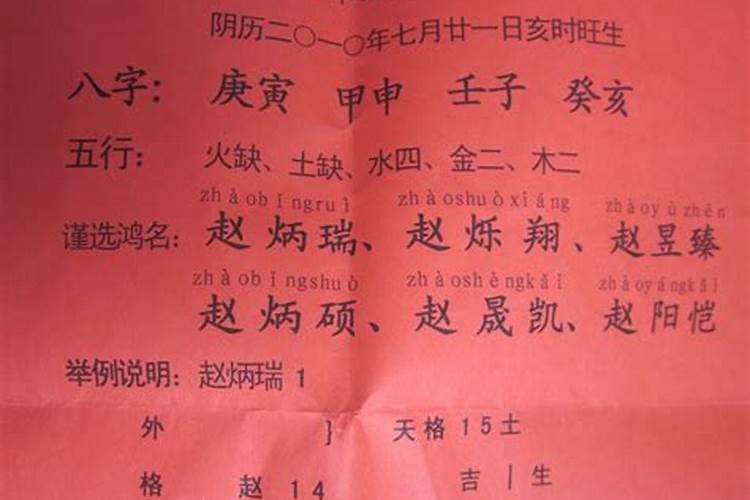 阴历二〇一〇年七月廿一日亥时旺生
八字： 庚寅 甲申 壬子 癸亥
五行： 火缺、土缺、水四、金二、木二
zhàobǐngruì zhàoshuòxiáng zhàoyùzhēn
谨选鸿名：赵炳瑞、赵烁翔、赵昱臻
zhàobǐngshuò zhàoshèngkǎi zhàoyángkǎi
赵炳硕、赵晟凯、赵阳恺
举例说明：赵炳瑞 1
外 } 天格 15土
格 赵 14 吉 | 生